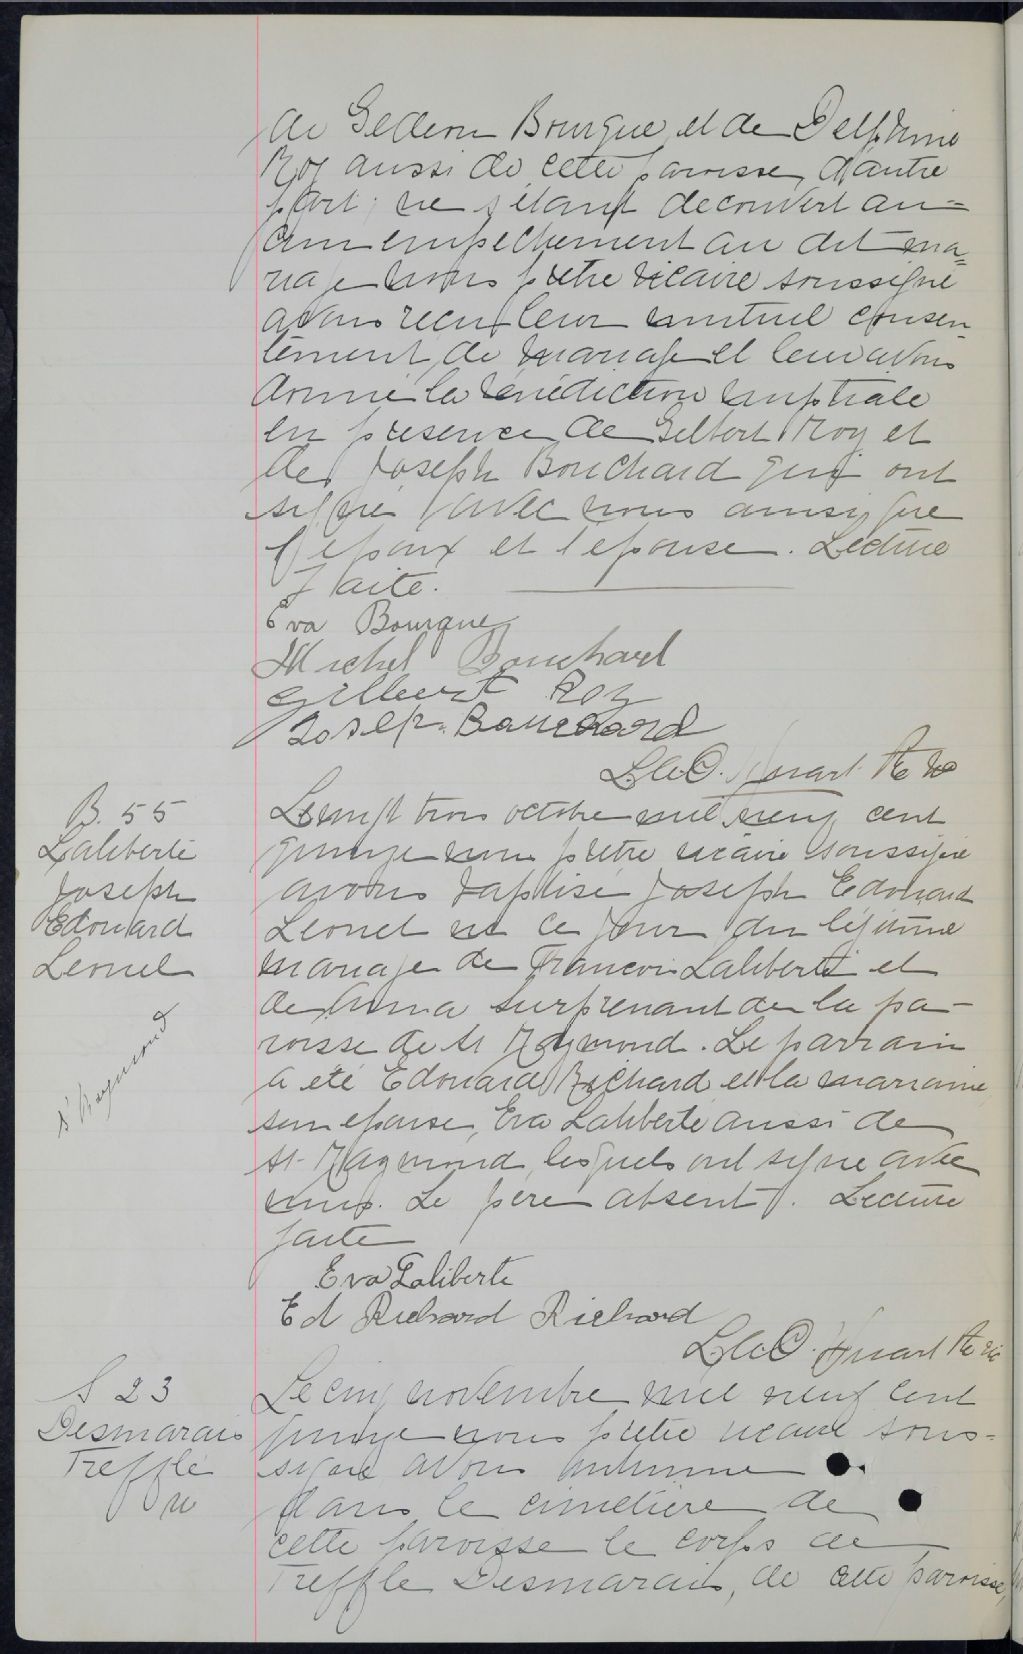 de Gedeon Bourque et de Delphine
Roy aussi de cette paroisse, d'autre
part; ne s'étant decouvert au=
cun empechement au dit ma=
riage nous prêtre vicaire soussigné
avons recu leur mutuel consen
tement de mariage et leur avons
donné la bénédiction nuptiale
en presence de Gilbert Roy et
de Joseph Bouchard qui ont
signé avec nous ainsi que
l'epoux et l'epouse. Lecture
faite.
Eva Bourque
Michel Bouchard
Gilbert Roy
Josep. Bouchard
Ptre Vic
B. 55
Laliberté
Joseph
Edouard
Leonel
St Raymond
Le vingt trois octobre mil neuf cent
quinze nous prêtre vicaire soussigné
avons baptisé Joseph Edouard
Leonel né ce jour du légitime
mariage de Francois Laliberté et
de Anna Surprenant de la pa-
roisse de St Raymond. Le parrain
a été Edouard Richard et la marraine
son epouse, Eva Laliberté aussi de
St-Raymond lesquels ont signé avec
nous. Le père absent. Lecture
faite
Eva Laliberte
Ed Richard Richard
Ptre vic
S 23
Desmarais
Treffle
Le cinq novembre mil neuf cent
quinze nous prêtre vicaire sous=
signé avons inhumé
dans le cimetière de
cette paroisse le corps de
Treffle Desmarais, de cette paroisse,